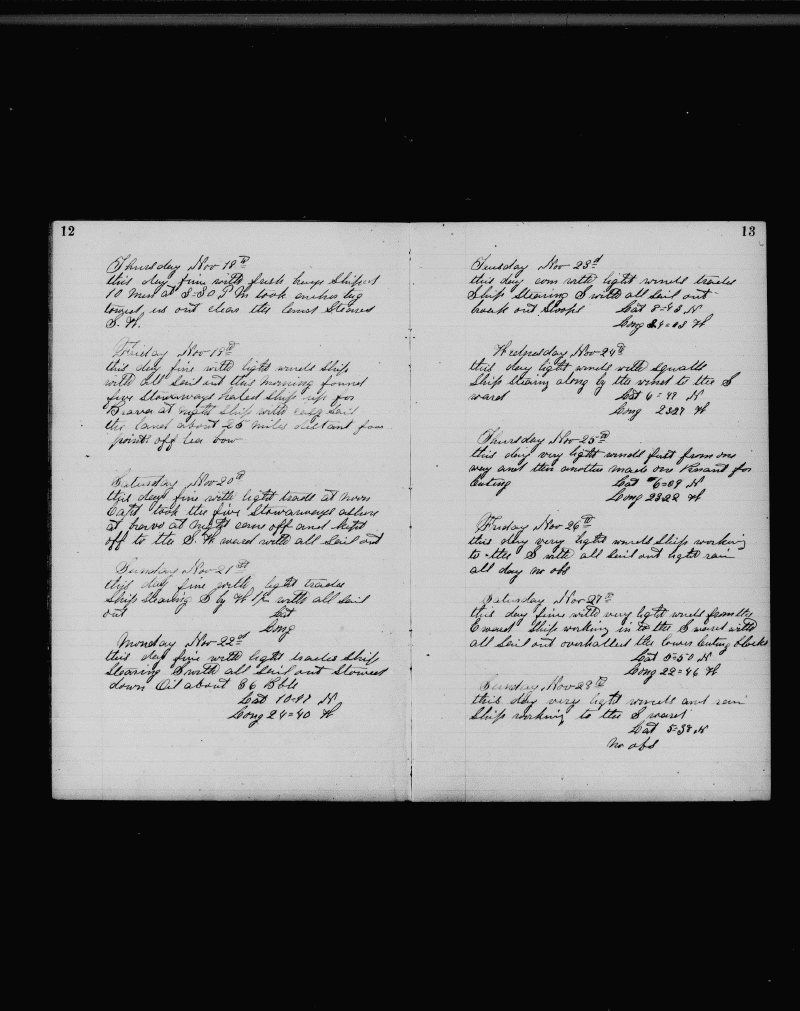 12
Thursday Nov 18th
this day fine with fresh breeze Shipped
10 Men at 3=30 P M took anchor tug
towed us out clear the land Steered
S. W.
Friday Nov 19th
this day fine with light winds Ship
with all Sail out this morning found
five Stowaways hauled Ship up for
Brava at night Ship with easy Sail
the land about 25 miles distant four
points off lee bow
Saturday Nov 20th
this day fine with light trades at noon
Capt took the five Stowaways ashore
at bravo at Night came off and kept
off to the S. W ward with all Sail out
Sunday Nov 21st
this day fine with light trades
Ship Steering S by W 1/2 with all Sail
out Lat
Long
Monday Nov 22d
this day fine with light trades Ship
Steering S with all Sail out Stowed
down Oil about 86 Bbls
Lat 10=47 N
Long 24=40 W
13
Tuesday Nov 23d
this day com with light winds trades
Ship Steering S with all Sail out
broak out Slops Lat 8=43 N
Long 24=03 W
Wednesday Nov 24th
this day light winds with Squalls
Ship stearing along by the wind to the S
ward Lat 6=47 N
Long 2327 W
Thursday Nov 25th
this day very light winds first from one
way and then another made one
Cuting Lat 6=09 N
Long 2322 W
Friday Nov 26th
this day very light winds Ship working
to the S with all Sail out light rain
all day no obs
Saturday Nov 27th
this day fine with very light winds from the
E ward Ship working in to the S ward with
all Sail out overhalled the lower Cuting blocks
Lat 5=50 N
Long 22=46 W
Sunday Nov 28th
this day very light winds and rain
Ship working to the S ward
Lat 5=38 N
no obs